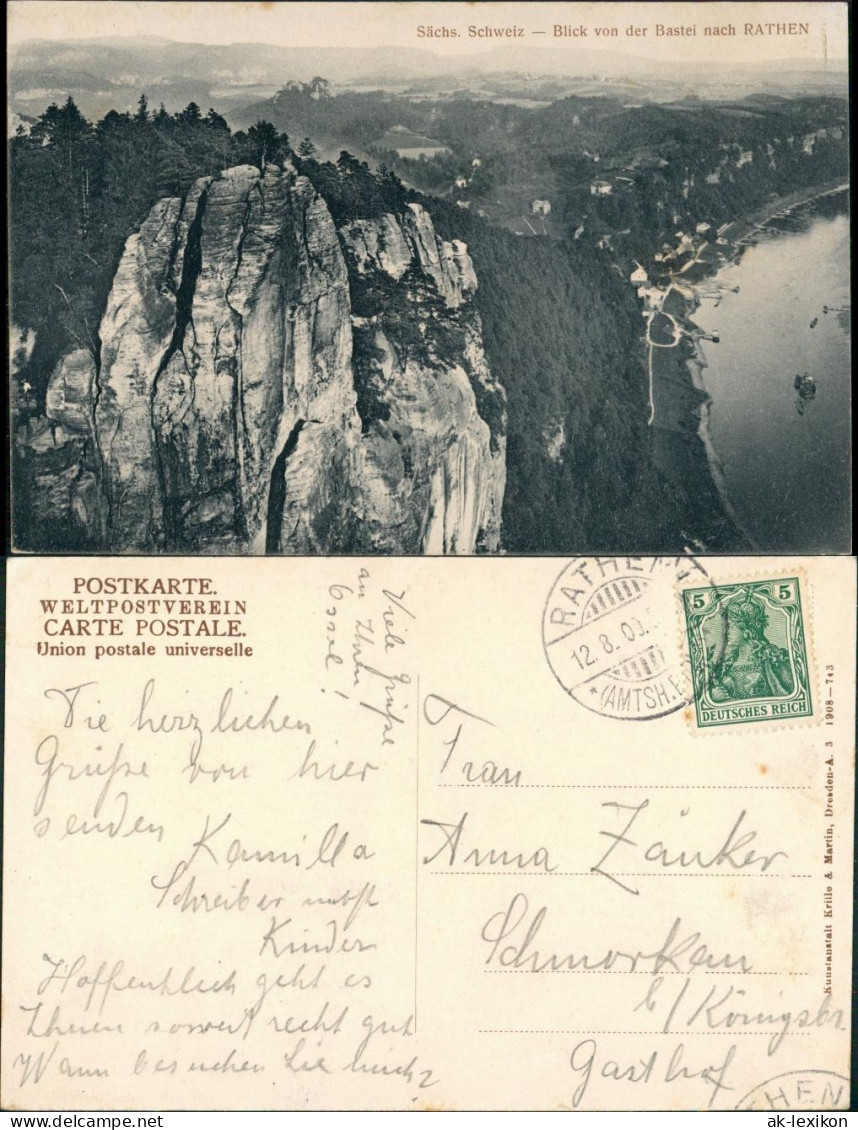 Sächs. Schweiz — Blick von der Bastei nach RATHEN
POSTKARTE.
WELTPOSTVEREIN
CARTE POSTALE.
Union postale universelle
Viele Grüße
an Ihren
Die herzlichen
Grüße von hier
senden
Kamilla
Schreiber nebst
Kindern
Hoffentlich geht es
Ihnen soweit recht gut
Wann besuchen Sie mich?
RATHEN
12.8.09.
*(AMTSH.
5 5
DEUTSCHES REICH
Frau
Anna Zänker
Schmorkau
b/Königsbr.
Gasthof
Kunstanstalt Krille & Martin, Dresden-A. 3 1908—743
THEN
akpool
ak-lexikon